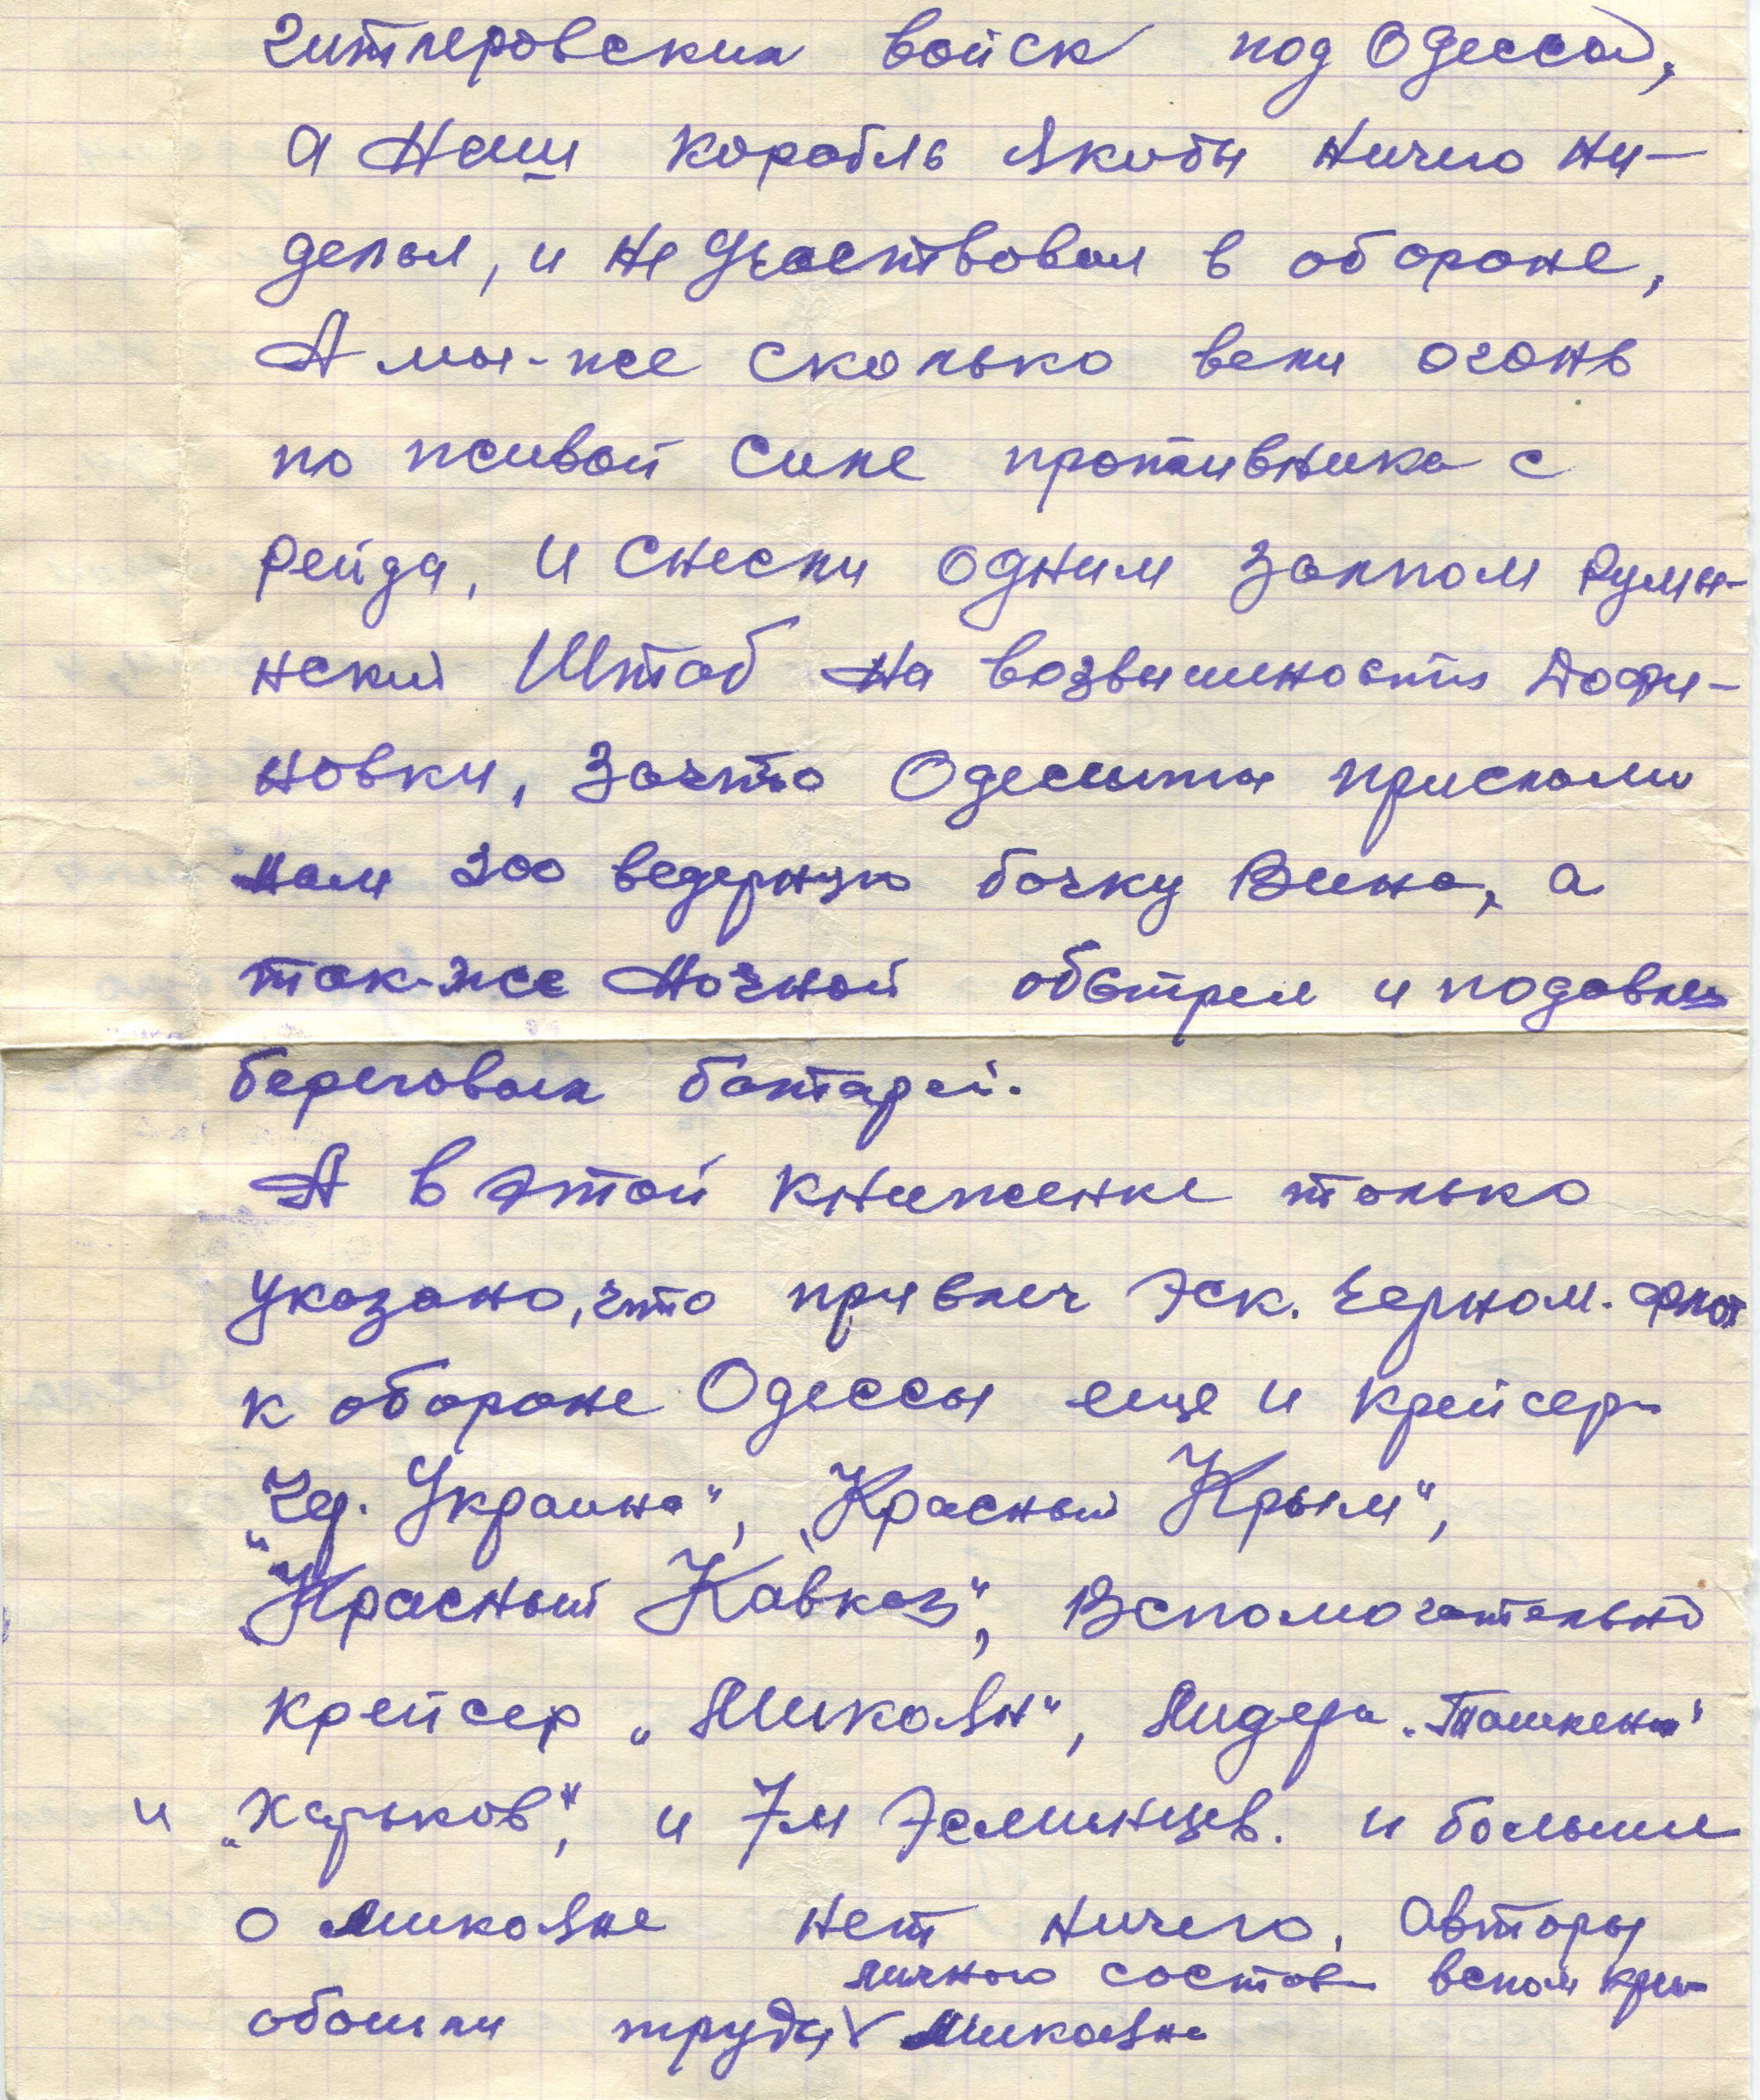 гитлеровских войск под Одессой,
а наш корабль якобы ничего ни-
делал, и не участвовал в обороне,
А мы-же сколько вели огонь
по живой силе противника с
рейда, и снесли одним залпом румы-
нский Штаб на возвышеность Дофи-
новки, зачто Одеситы прислали
нам 300 ведерную бочку Вина, а
так-же ночной обстрел и подавлен
береговых батарей.
А в этой книженке только
указано, что привлеч Эск. Черном. флот
к обороне Одессы еще и крейсер-
„Чер. Украина", „Красный Крым",
„Красный Кавказ", Вспомогательно
крейсер „Микоян", Лидера „Ташкент"
и „Харьков", и 7м Эсминцев. и больше
о Микояне нет ничего, Авторы
личного состав вспом кре-
обошли труды ν Микояна